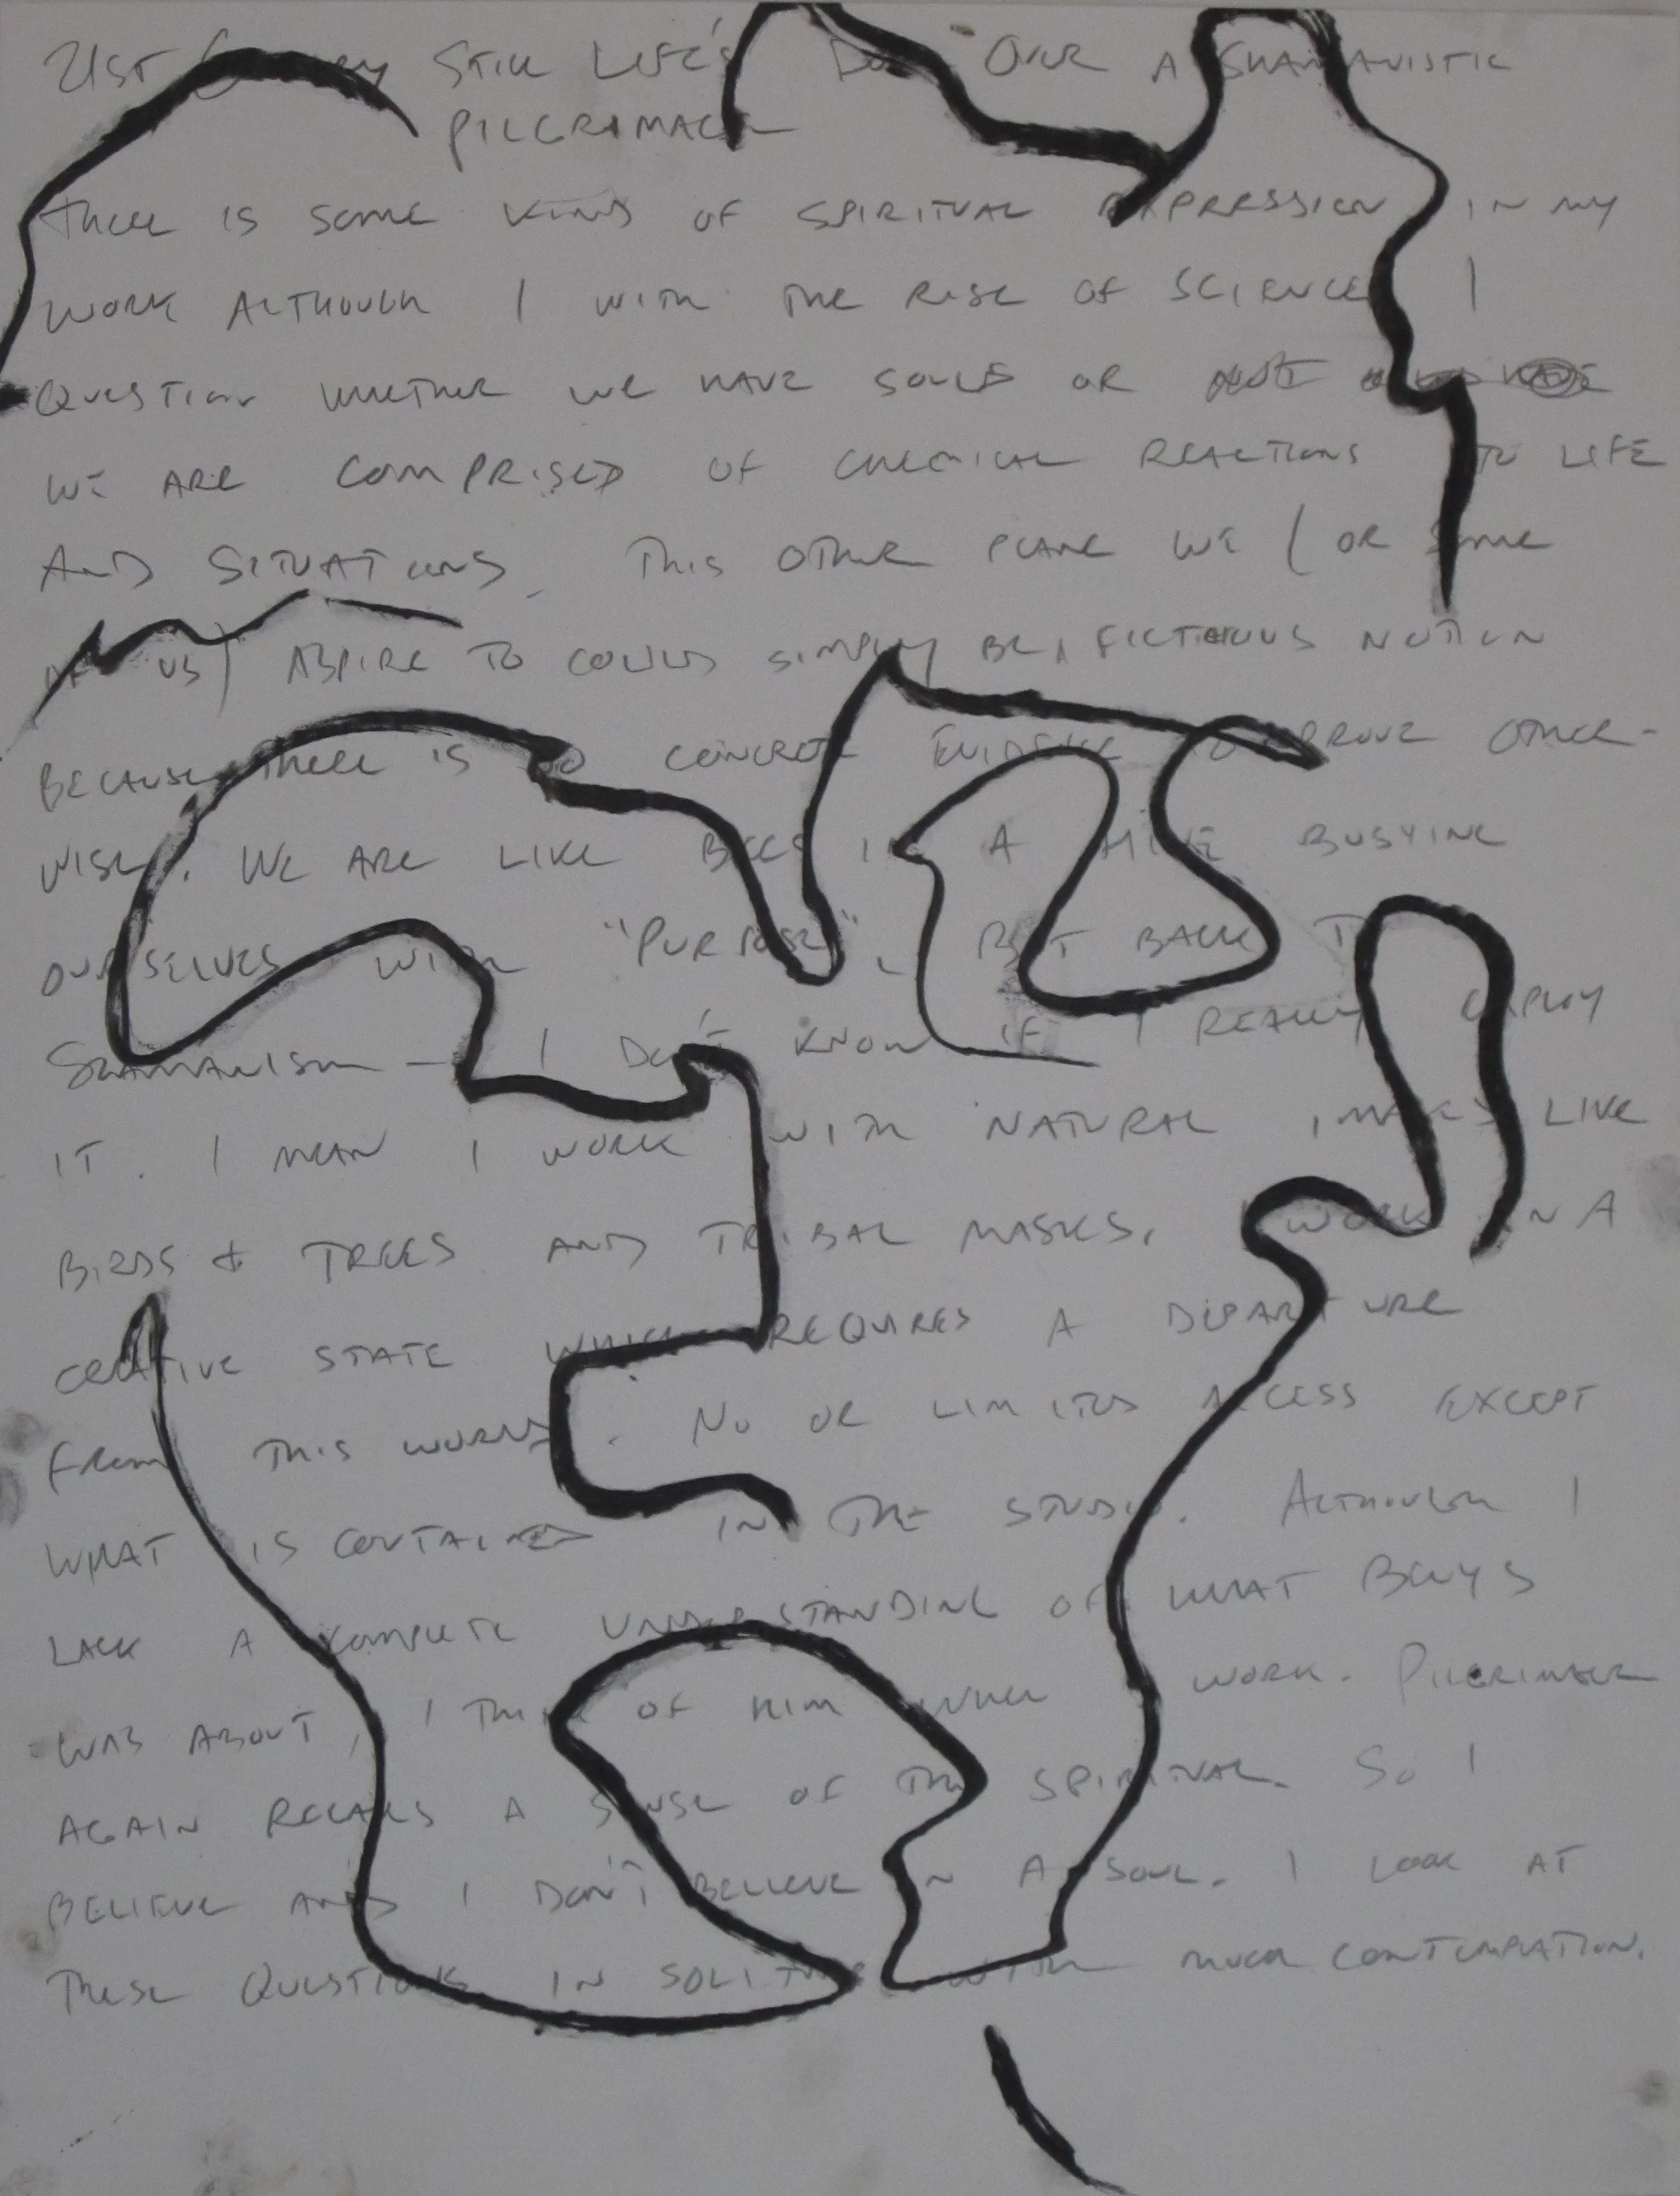 21ST Century STILL LIFE'S OVER A SHAMANISTIC
PILGRIMAGE
THERE IS SOME KIND OF SPIRITUAL EXPRESSION IN MY
WORK ALTHOUGH I WITH THE RISE OF SCIENCE I
QUESTION WHETHER WE HAVE SOULS OR
WE ARE COMPRISED OF CHEMICAL REACTIONS TO LIFE
AND SITUATIONS. THIS OTHER PLANE WE (OR SOME
OF US) ASPIRE TO COULD SIMPLY BE A FICTICIOUS NOTION
BECAUSE THERE IS NO CONCRETE EVIDENCE TO PROVE OTHER-
WISE. WE ARE LIKE BEES IN A HIVE BUSYING
OURSELVES WITH "PURPOSE". BUT BACK TO
SHAMANISM — I DON'T KNOW IF I REALLY EMPLOY
IT. I MEAN I WORK WITH NATURAL IMAGES LIKE
BIRDS & TREES AND TRIBAL MASKS. I WORK IN A
CREATIVE STATE WHICH REQUIRES A DEPARTURE
FROM THIS WORLD. NO OR LIMITED ACCESS EXCEPT
WHAT IS CONTAINED IN THE STUDIO. ALTHOUGH I
LACK A COMPLETE UNDERSTANDING OF WHAT BEUYS
WAS ABOUT, I THINK OF HIM WHEN I WORK. PILGRIMAGE
AGAIN RECALLS A SENSE OF THE SPIRITUAL. SO I
BELIEVE AND I DON'T BELIEVE IN A SOUL. I LOOK AT
THESE QUESTIONS IN SOLITUDE WITH MUCH CONTEMPLATION.